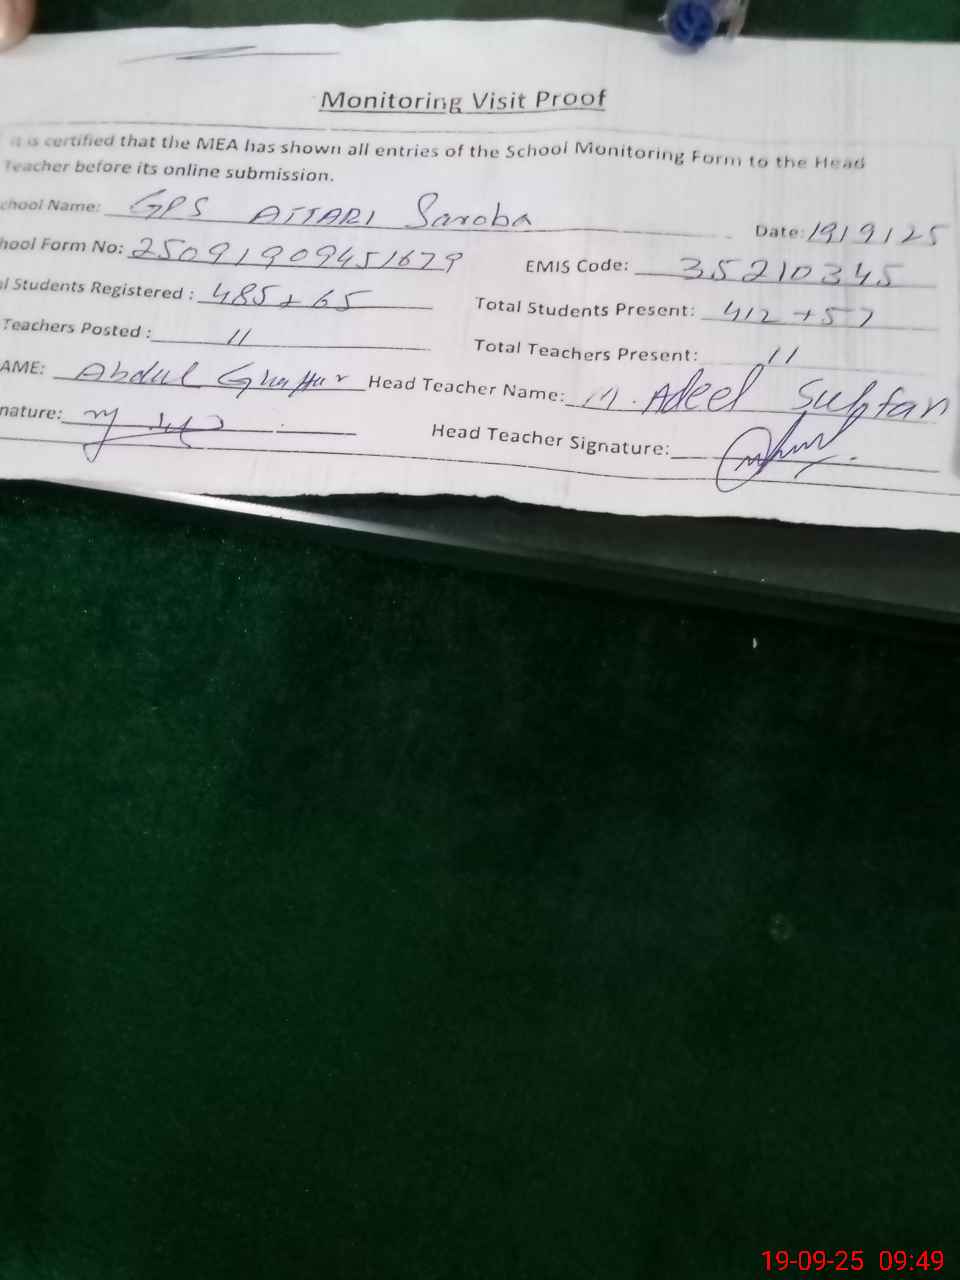 Monitoring Visit Proof
it is certified that the MEA has shown all entries of the School Monitoring Form to the Head
Teacher before its online submission.
chool Name: GPS ATTARI Saroba Date: 19/9/25
hool Form No: 25091909451679 EMIS Code: 35210345
al Students Registered : 485+65 Total Students Present: 412+57
Teachers Posted : 11 Total Teachers Present: 11
AME: Abdul Ghaffur Head Teacher Name: M. Adeel Sultan
nature: Head Teacher Signature:
19-09-25 09:49